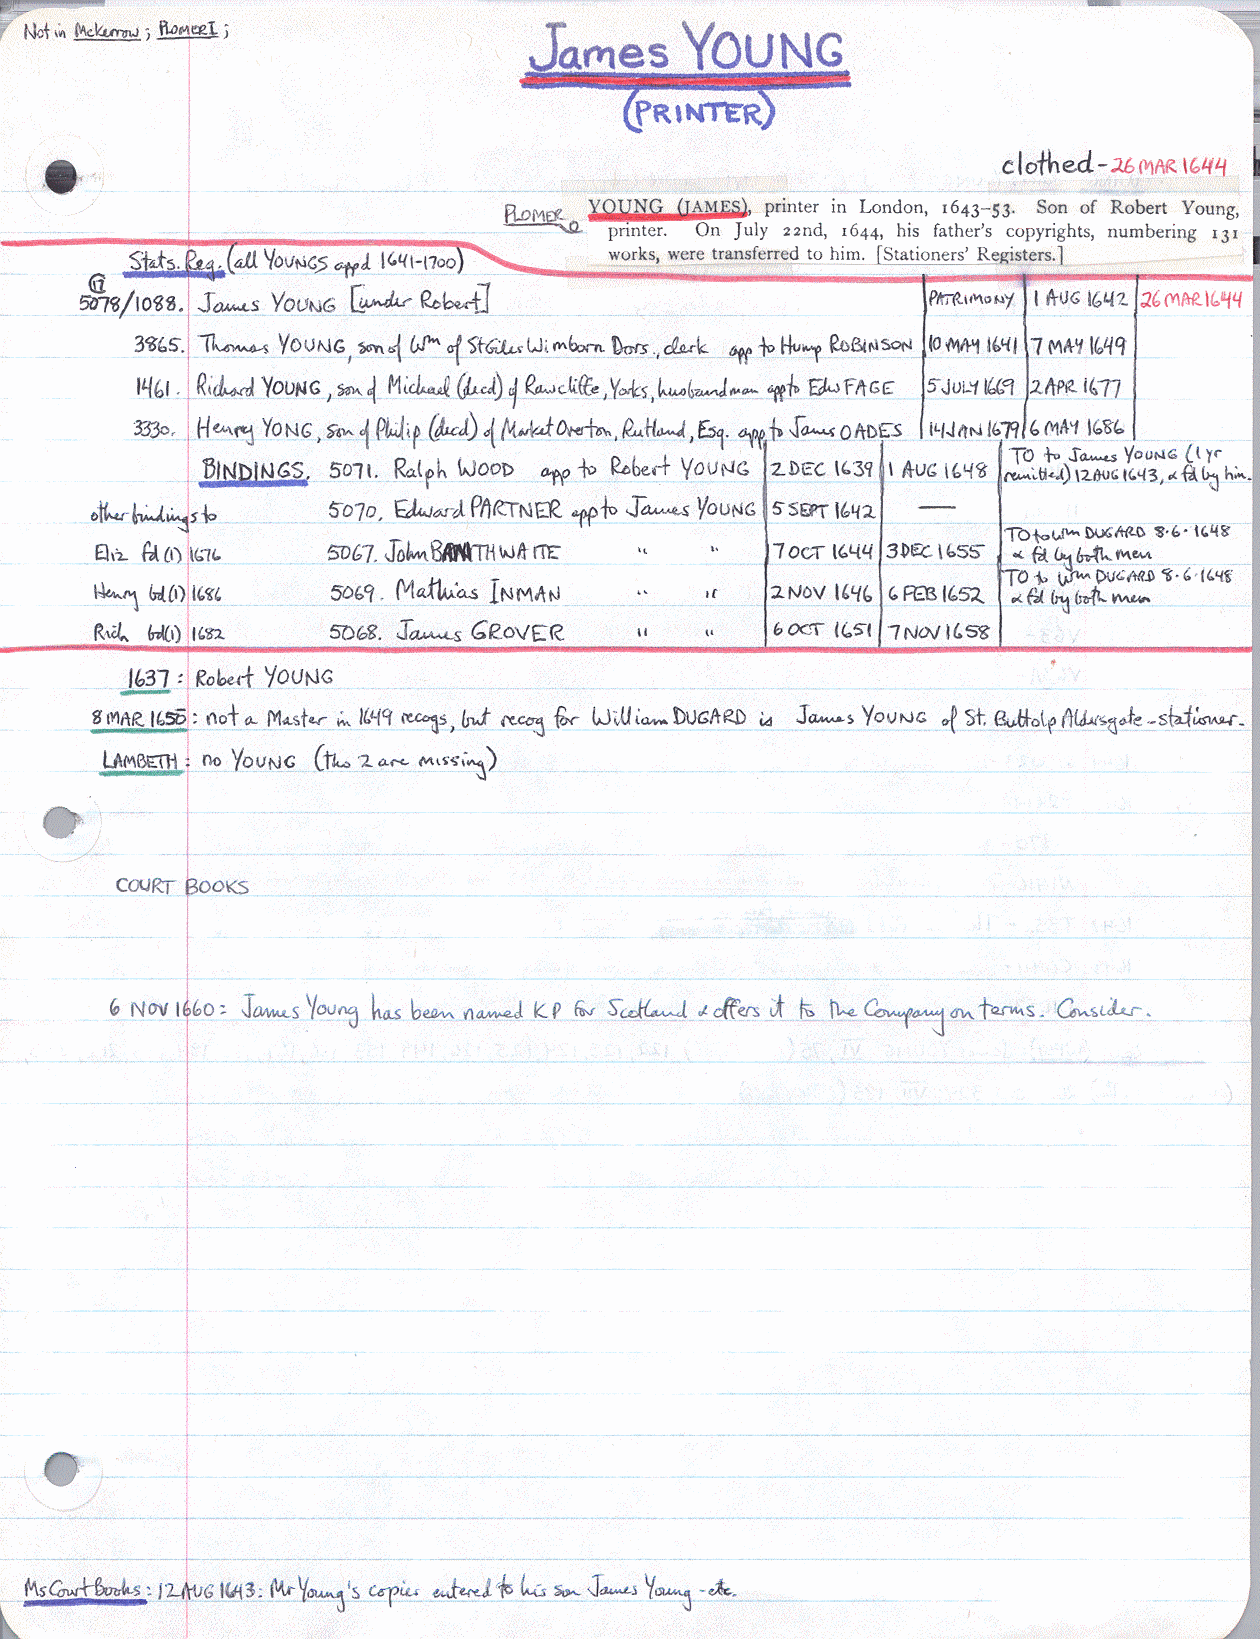 Not in McKerrow; PLOMER I;
James YOUNG
(PRINTER)
clothed - 26 MAR 1644
PLOMER YOUNG (JAMES), printer in London, 1643–53. Son of Robert Young,
printer. On July 22nd, 1644, his father's copyrights, numbering 131
works, were transferred to him. [Stationers' Registers.]
Stats. Reg. (all YOUNGS app'd 1641-1700)
17
5078/1088. James YOUNG [under Robert] PATRIMONY 1 AUG 1642 26 MAR 1644
3865. Thomas YOUNG, son of Wm of St Giles Wimborn Dors., clerk app to Hump ROBINSON 10 MAY 1641 7 MAY 1649
1461. Richard YOUNG, son of Michael (decd) of Rawcliffe, Yorks, husbandman app to Edw FAGE 5 JULY 1669 2 APR 1677
3330. Henry YONG, son of Philip (decd) of Market Overton, Rutland, Esq. app to James OADES 14 JAN 1679 6 MAY 1686
BINDINGS. 5071. Ralph WOOD app to Robert YOUNG 2 DEC 1639 1 AUG 1648 TO to James YOUNG (1 yr remitted) 12 AUG 1643, & fd by him.
other bindings to 5070. Edward PARTNER app to James YOUNG 5 SEPT 1642 —
Eliz fd (1) 1676 5067. John BRAITHWAITE " " 7 OCT 1644 3 DEC 1655 TO to Wm DUGARD 8.6.1648 & fd by both men
Henry bd (1) 1686 5069. Mathias INMAN " " 2 NOV 1646 6 FEB 1652 TO to Wm DUGARD 8.6.1648 & fd by both men
Rich bd (1) 1682 5068. James GROVER " " 6 OCT 1651 7 NOV 1658
1637: Robert YOUNG
8 MAR 1650: not a Master in 1649 recogs, but recog for William DUGARD is James YOUNG of St. Buttolp Aldersgate - stationer.
LAMBETH: no YOUNG (tho 2 are missing)
COURT BOOKS
6 NOV 1660: James Young has been named KP for Scotland & offers it to the Company on terms. Consider.
Ms Court Books: 12 AUG 1643: Mr Young's copies entered to his son James Young - etc.